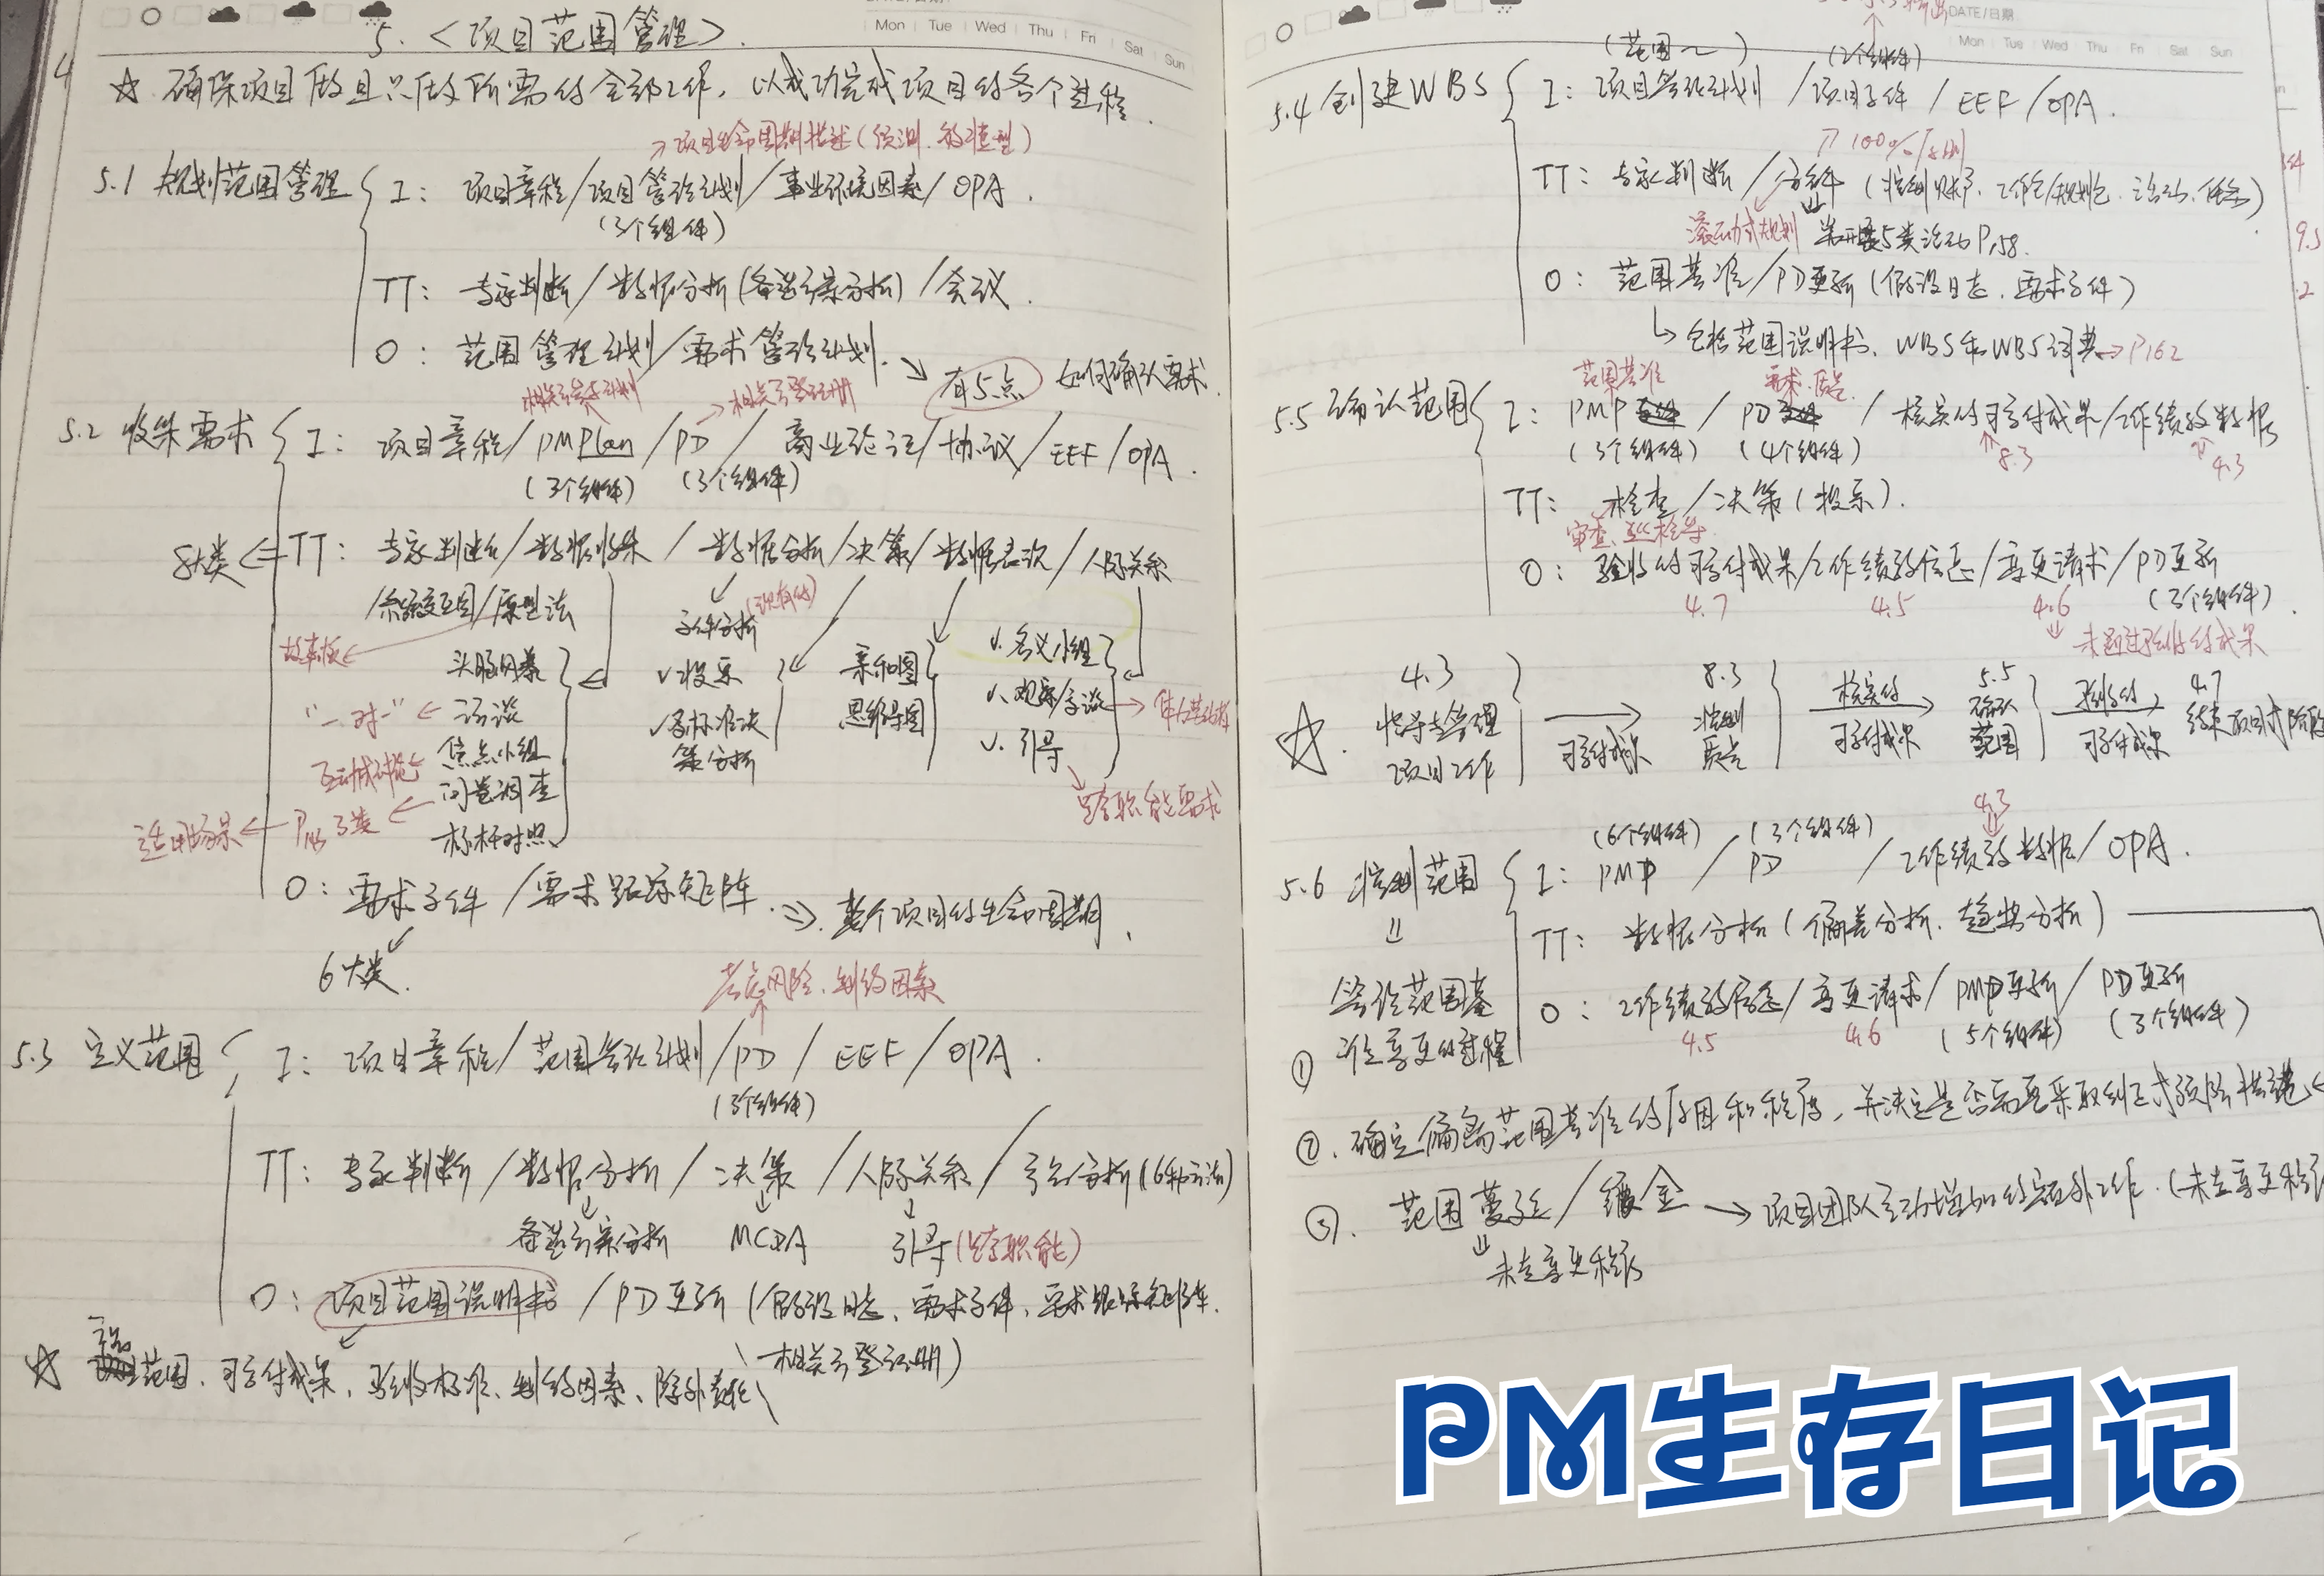 5.〈项目范围管理〉.
Mon Tue Wed Thu Fri Sat Sun
4
☆ 确保项目做且只做所需的全部工作,以成功完成项目的各个过程.
→项目生命周期描述(预测、敏捷型)
5.1 规划范围管理 { I: 项目章程/项目管理计划/事业环境因素/OPA.
(3个组件)
TT: 专家判断/数据分析(备选方案分析)/会议.
O: 范围管理计划/需求管理计划. → 有5点 如何确认需求.
相关方参与计划 →相关方登记册
5.2 收集需求 { I: 项目章程/PMPlan/PD/商业论证/协议/EEF/OPA.
(3个组件) (3个组件)
8大类 ⇐ TT: 专家判断/数据收集/数据分析/决策/数据表现/人际关系
/系统交互图/原型法
故事板←
文件分析(现有的)
头脑风暴
"一对一" ← 访谈
互动式讨论← 焦点小组
问卷调查
适用场景 ← 3类
标杆对照
√投票
√多标准决策分析
亲和图
思维导图
√.名义小组
√.观察/交谈→
√.引导
跨职能需求
O: 需求文件/需求跟踪矩阵. ⇒ 整个项目的生命周期.
6大类.
考虑风险、制约因素
5.3 定义范围 { I: 项目章程/范围管理计划/PD/EEF/OPA.
(3个组件)
TT: 专家判断/数据分析/决策/人际关系/产品分析(6种方法)
备选方案分析 MCDA 引导(跨职能)
O: 项目范围说明书/PD更新(假设日志、需求文件、需求跟踪矩阵.
相关方登记册)
☆ 产品范围、可交付成果、验收标准、制约因素、除外责任
DATE/日期
Mon Tue Wed Thu Fri Sat Sun
(范围~) (2个组件)
5.4 创建WBS { I: 项目管理计划/项目文件/EEF/OPA.
↗100%规则
TT: 专家判断/分解(控制账户、工作包/规划包、活动、任务)
滚动式规划 需开展5类活动P158.
O: 范围基准/PD更新(假设日志、需求文件)
↳包括范围说明书、WBS和WBS词典→P162
范围基准 需求、质量
5.5 确认范围 { I: PMP / PD / 核实的可交付成果/工作绩效数据
(3个组件) (4个组件) 8.3 4.3
TT: 检查/决策(投票).
审查、巡检等
O: 验收的可交付成果/工作绩效信息/变更请求/PD更新
4.7 4.5 4.6 (3个组件).
未通过验收的成果
☆. 4.3 指导与管理项目工作 → 可交付成果 8.3 控制质量 核实的→可交付成果 5.5 确认范围 验收的→可交付成果 4.7 结束项目或阶段
4.3
(6个组件) (3个组件)
5.6 控制范围 { I: PMP / PD / 工作绩效数据/OPA.
TT: 数据分析(偏差分析、趋势分析)
O: 工作绩效信息/变更请求/PMP更新/PD更新
4.5 4.6 (5个组件) (3个组件)
① 管理范围基准变更的过程
②.确定偏离范围基准的原因和程度,并决定是否需要采取纠正或预防措施
③. 范围蔓延/镀金 → 项目团队主动增加的额外工作.(未走变更程序
未走变更程序
PM生存日记